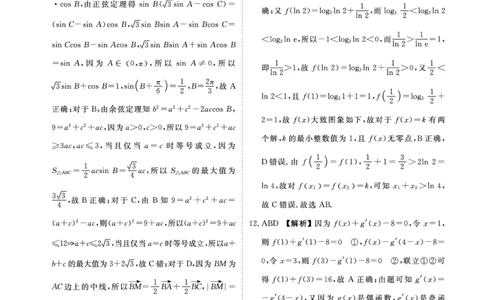 · cos B,由正弦定理得 sin B(√3 sin A-cos C)=
(sin C-sin A)cos B,√3 sin Bsin A-sin Bcos C=
sin Ccos B-sin Acos B,√3 sin Bsin A+sin Acos B
=sin A,因为 A∈(0,π),所以 sin A≠0,所以
√3 sin B+cos B=1,sin(B+π/6)=1/2,B=2π/3,故 A
正确;对于 B,由余弦定理知 b²=a²+c²-2accos B,
9=a²+c²+ac,因为 a>0,c>0,所以 9=a²+c²+ac
≥3ac,ac≤3,当且仅当 a=c 时等号成立,因为
S△ABC=1/2 acsin B=√3/4 ac,所以 S△ABC 的最大值为
3√3/4,故 B 正确;对于 C,由 B 知 9=a²+c²+ac=
(a+c)²-ac,则(a+c)²=9+ac,所以(a+c)²=9+ac
≤12⇒a+c≤2√3,当且仅当 a=c 时等号成立,所以a+
b+c 的最大值为 3+2√3,故 C 错;对于 D,因为 BM 为
AC边上的中线,所以BM=1/2 BA+1/2 BC,|BM|=
确;又 f(ln 2)=log₂ln 2+1/ln 2,而 log₂ 1/2<log₂ln 2
<log₂ln e,所以-1<log₂ln 2<0,而 1/ln 2>1/ln e=1,
即 1/ln 2>1,故 f(ln 2)=log₂ln 2+1/ln 2>0,又 1/2<
ln 2<1,且 f(1)=log₂1+1=1,f(1/2)=log₂ 1/2+
2=1,故 f(x)大致图象如下,故对于 f(x)=k 有两
个解,k 的最小整数值为 1,且 f(x)无零点,B 正确,
D 错误.由 f(1/2)=f(1),1/2+1=3/2>2ln 2=
ln 4,故对 f(x₁)=f(x₂)=k,可知 x₁+x₂>ln 4,
故 C 错误.故选 AB.
12. ABD 【解析】因为 f(x)+g′(x)-8=0,令 x=1,
则 f(1)+g′(1)-8=0 ①,f(x)-g′(4-x)-8=
0,令 x=3,则 f(3)-g′(1)-8=0 ②,联立①②可
得 f(1)+f(3)=16,故 A 正确;由题可知 g′(x)=
-g′(4-x),又因为 g(x)是偶函数,g′(x)是奇函